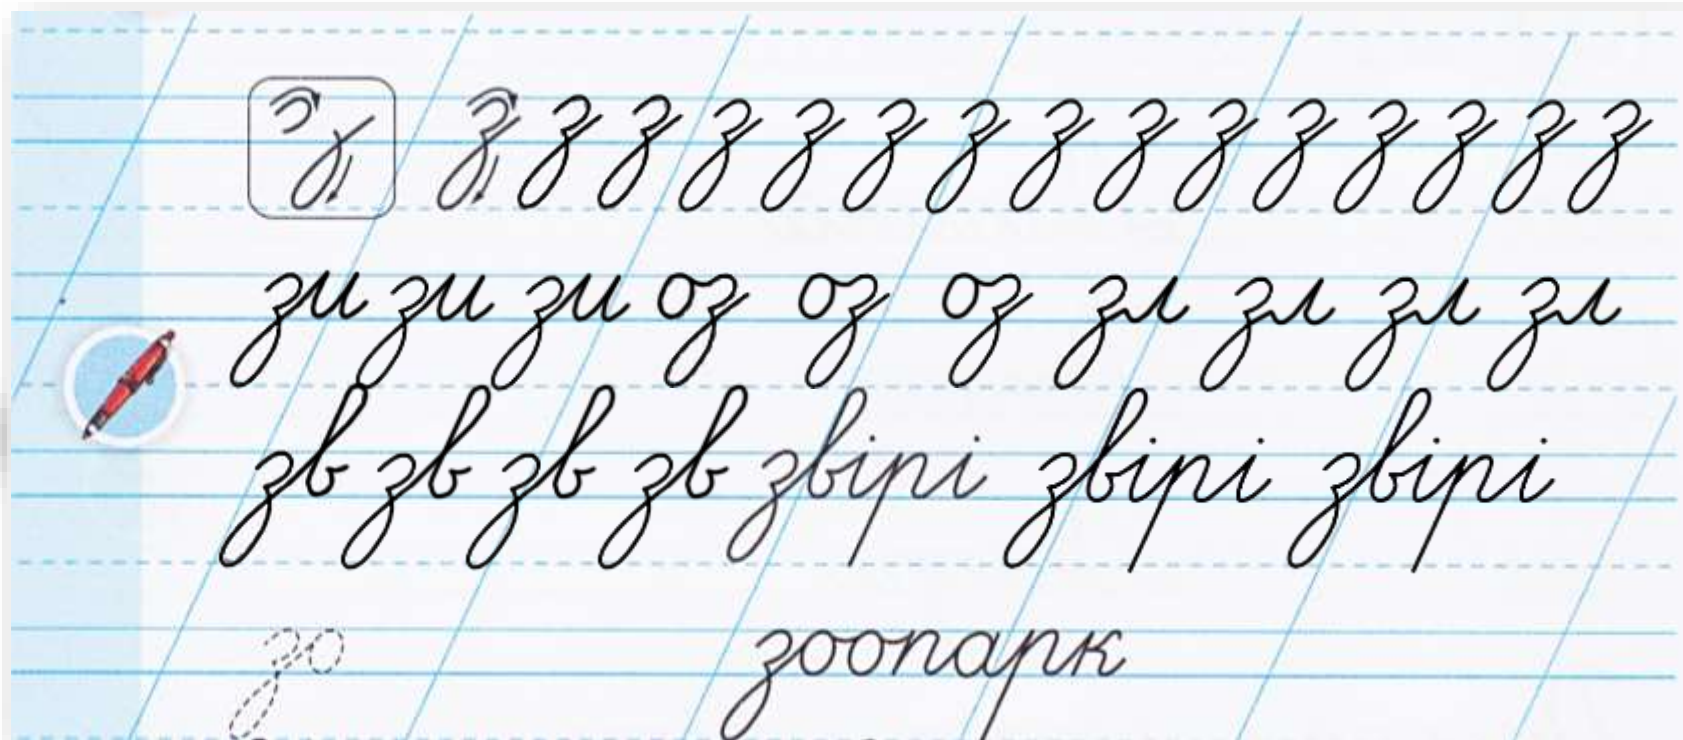 з з з з з з з з з з з з з з з
зи зи зи оз оз оз зл зл зл зл
зв зв зв зв звірі звірі звірі
зо зоопарк